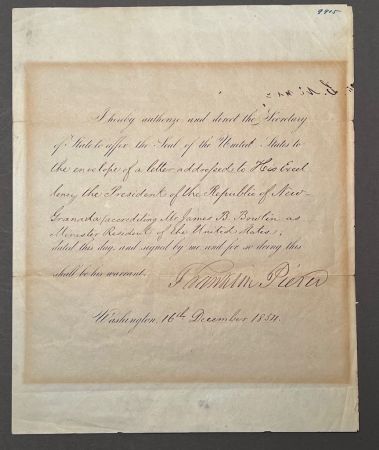 9915
I hereby authorize and direct the Secretary
of State to affix the Seal of the United States to
the envelope of a letter addressed to His Excel
lency the President of the Republic of New-
Granada, accrediting Mr James B. Bowlin as
Minister Resident of the United States,
dated this day, and signed by me and for so doing this
shall be his warrant.
Franklin Pierce
Washington, 16th December 1854.